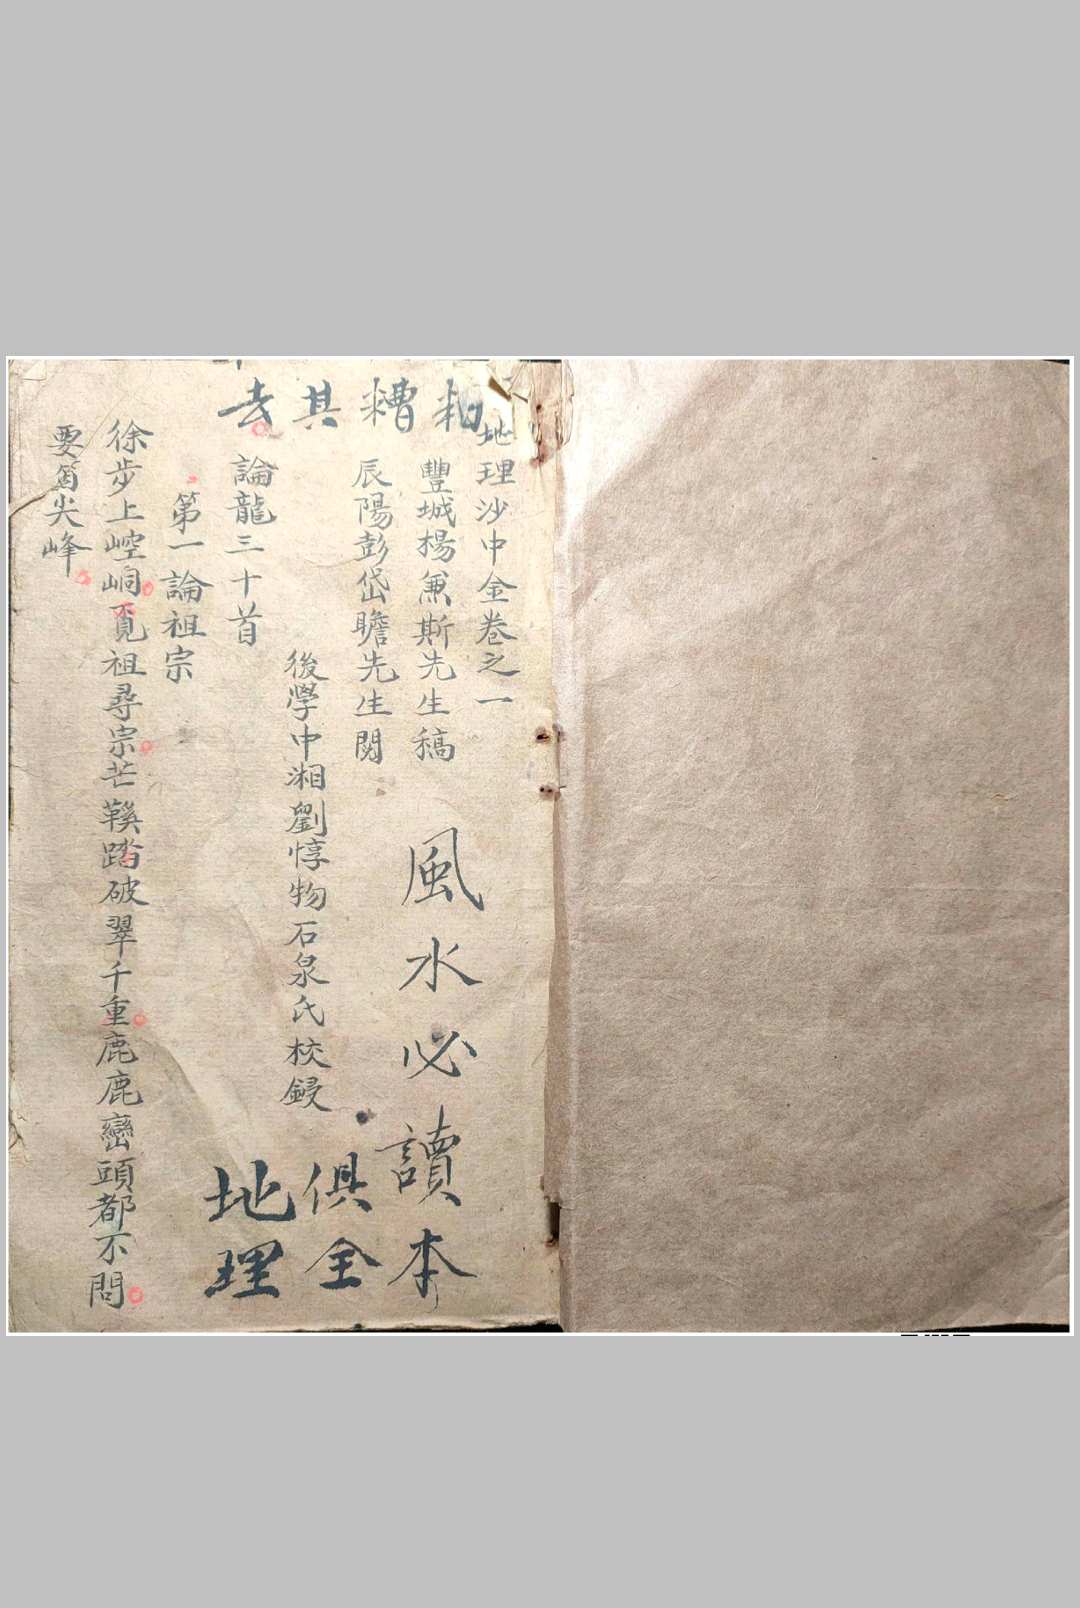 地理沙中金卷之一
豐城楊兼斯先生稿
辰陽彭岱瞻先生閱
後學中湘劉惇物石泉氏校鋟
論龍三十首
第一論祖宗
徐步上崆峒覓祖尋宗芒鞵踏破翠千重鹿鹿巒頭都不問
要箇尖峰
糟其去
風水必讀本
俱全
地理